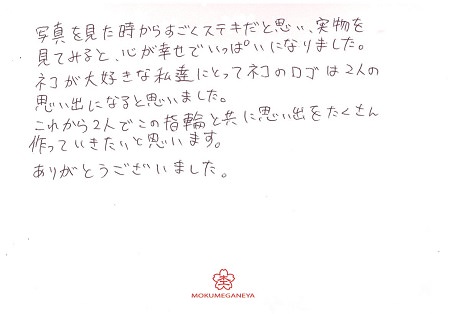 写真を見た時からすごくステキだと思い、実物を
見てみると、心が幸せでいっぱいになりました。
ネコが大好きな私達にとってネコのロゴは2人の
思い出になると思いました。
これから2人でこの指輪と共に思い出をたくさん
作っていきたいと思います。
ありがとうございました。
MOKUMEGANEYA